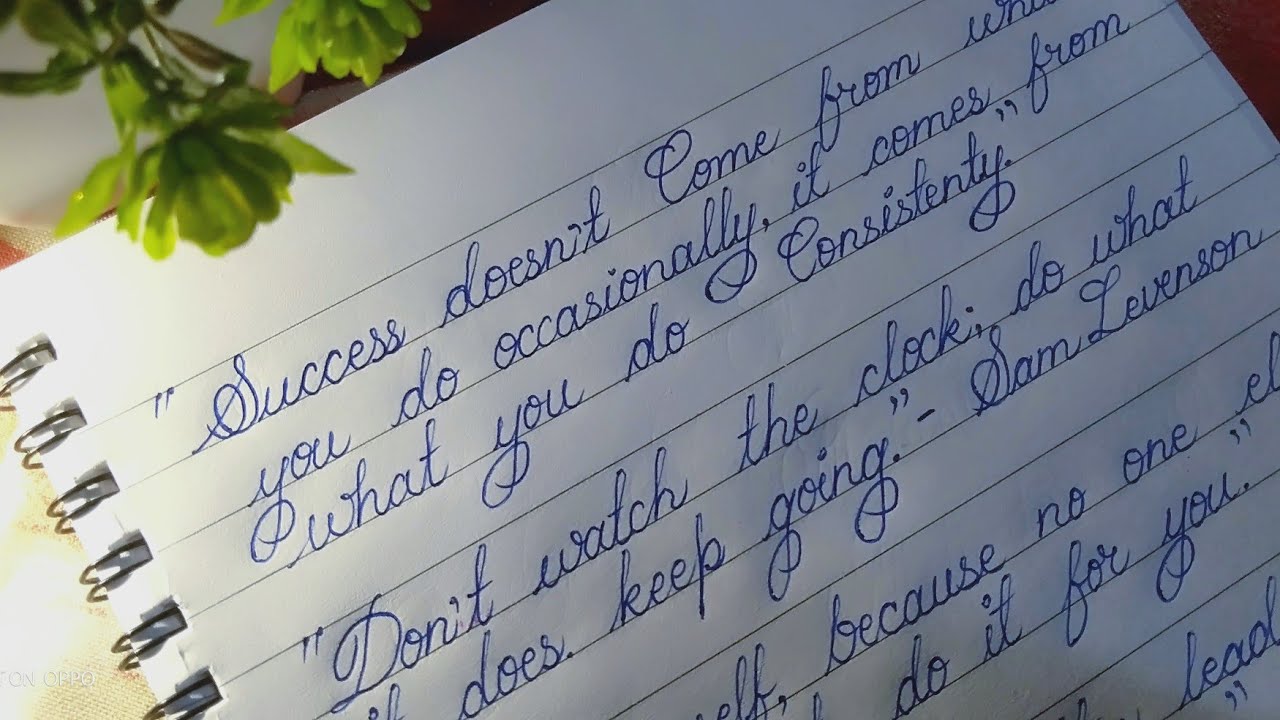 " Success doesn't Come from
you do occasionally, it comes from
what you do Consistenty."
"Don't watch the clock; do what
it does. keep going." - Sam Levenson
because no one el
do it for you."
lead
"
TON OPPO